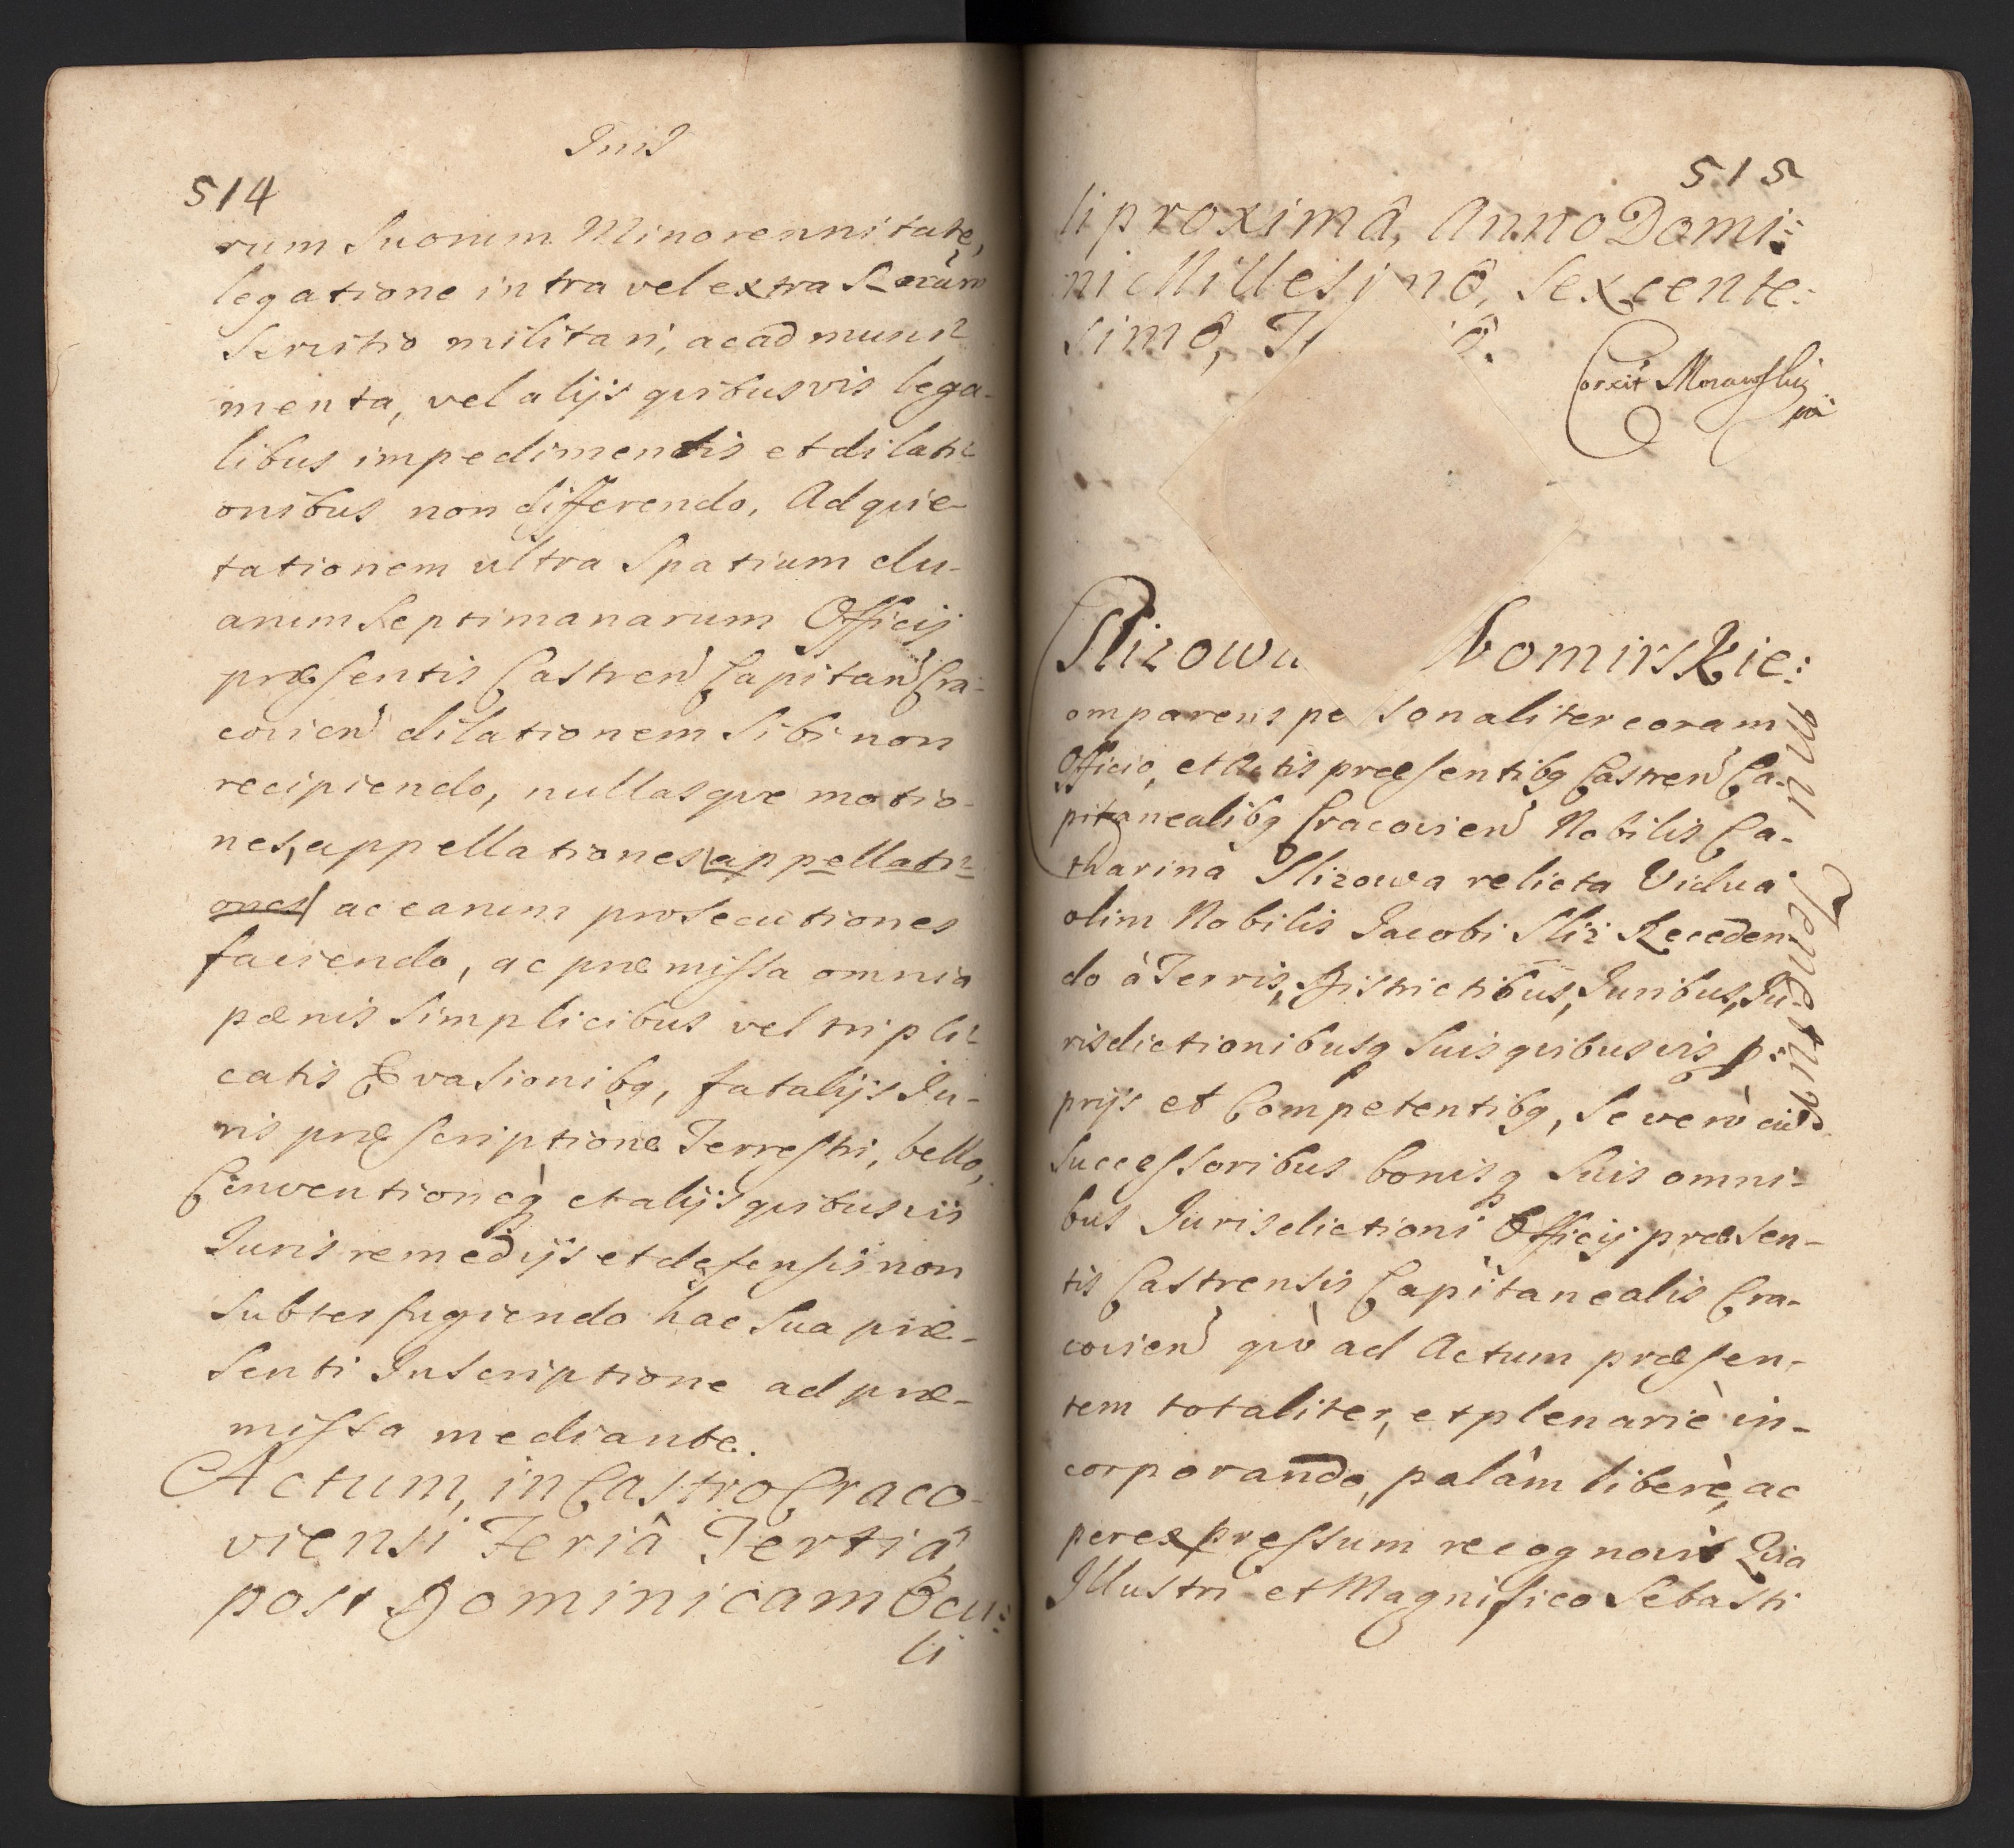 Juris
514
rum Suorum Minorennitate,
legatione intra vel extra Regnum
Servitio militari, ac ad muni-
menta, vel alijs quibusvis lega-
libus impedimentis et dilati-
onibus non differendo, Ad quie-
tationem ultra Spatium du-
arum Septimanarum Officij
præsentis Castren Capitan Cra-
covien dilationem Sibi non
recipiendo, nullasque motio-
nes, appellationes appellati-
ones ac earum prosecutiones
faciendo, ac præmissa omnia
pænis Simplicibus vel tripli-
catis Evasionibq, fatalijs Ju-
ris præscriptione Terrestri, bello,
Conventioneq et alijs quibusvis
Juris remedijs et defensis non
Subterfugiendo hac Sua præ-
senti Inscriptione ad præ-
missa mediante.
Actum, in Castro Craco-
viensi Feriâ Tertiâ
post Dominicam Ocu:
li
515
li proximâ, Anno Domi:
ni Millesimô, Sexcente:
simô, T ô.
Corexit Morawski
mp
Slizowa bomirskie:
mu Tenetur
omparens personaliter coram
Officio, et Actis præsentibq Castren Ca-
pitanealibq Cracovien Nobilis Ca-
tharina Slizowa relicta Vidua
olim Nobilis Jacobi Sliz Receden-
do à Terris, Districtibus, Juribus, Ju-
risdictionibusq Suis quibusvis p:
prijs et Competentibq, Se verò cũ
Successoribus bonisq Suis omni-
bus Jurisdictioni Officij præsen-
tis Castrensis Capitanealis Cra-
covien quò ad Actum præsen-
tem totaliter, et plenariè in-
corporando, palàm liberè, ac
per expressum recognovit Quia
Illustri et Magnifico Sebasti